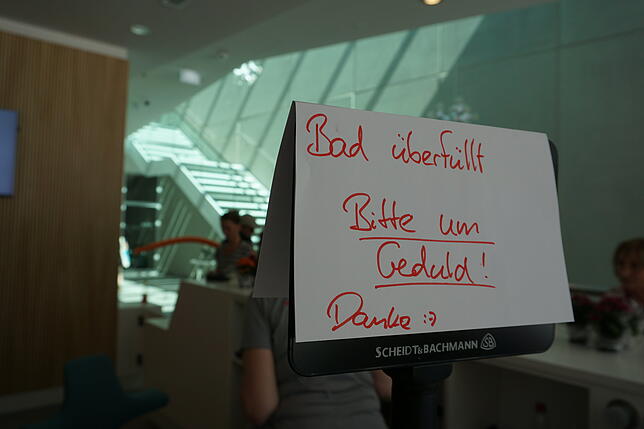 Bad überfüllt
Bitte um
Geduld!
Danke :-)
SCHEIDT&BACHMANN SB